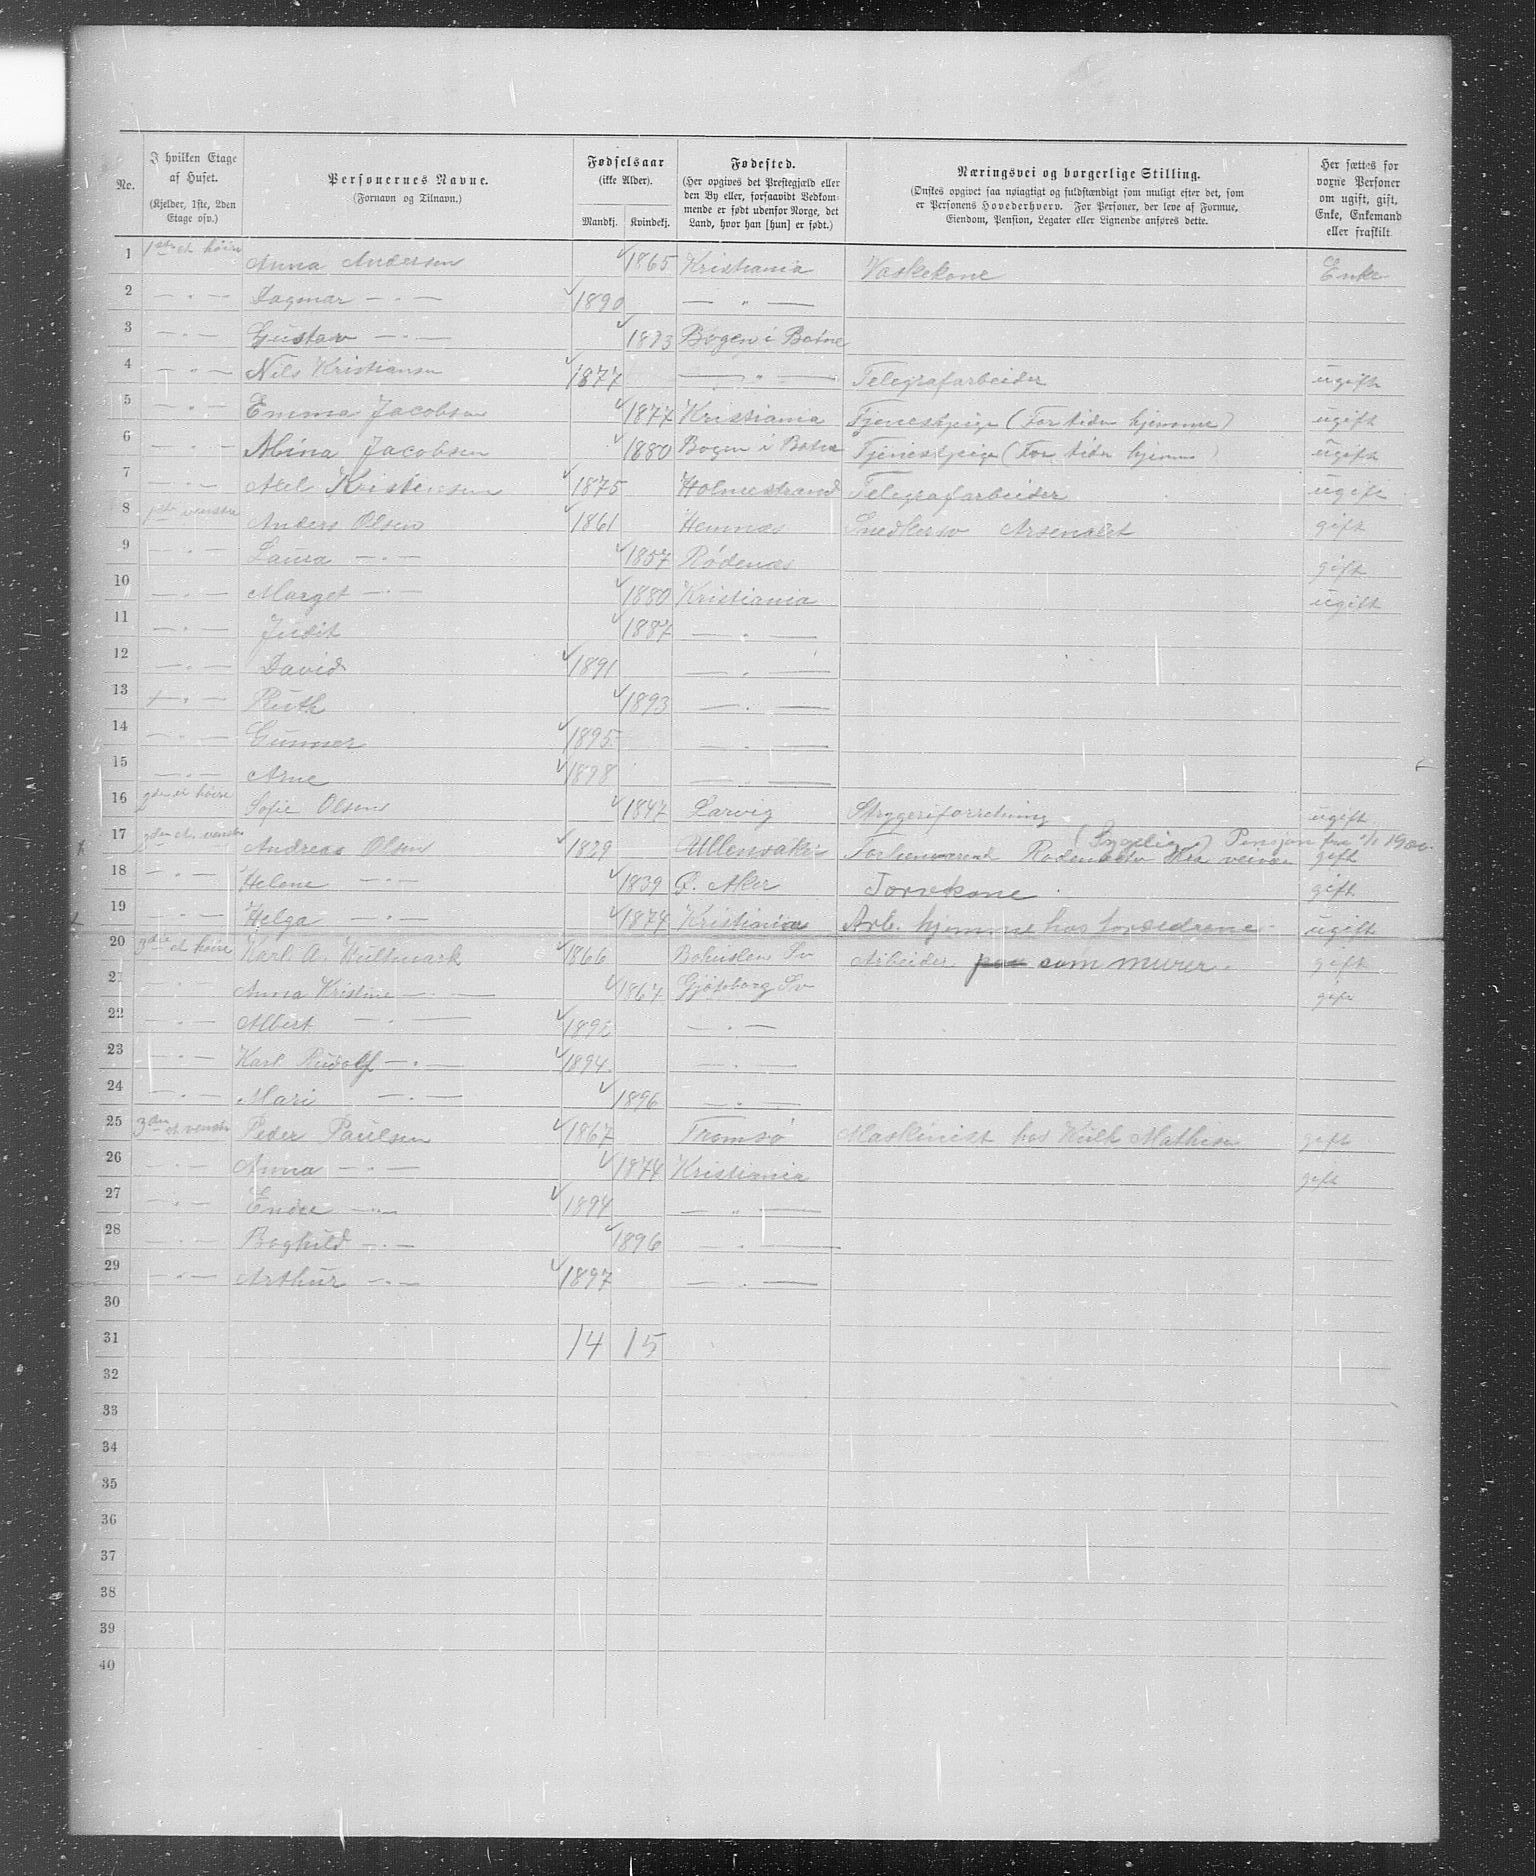 No.
I hvilken Etage af Huset.
(Kjelder, 1ste, 2den Etage osv.)
Personernes Navne.
(Fornavn og Tilnavn.)
Fødselsaar
(ikke Alder).
Mandkj. Kvindekj.
Fødested.
(Her opgives det Prestegjæld eller den By eller, forsaavidt Vedkommende er født udenfor Norge, det Land, hvor han [hun] er født.)
Næringsvei og borgerlige Stilling.
(Ønskes opgivet saa nøiagtigt og fuldstændigt som muligt efter det, som er Personens Hovederhverv. For Personer, der leve af Formue, Eiendom, Pension, Legater eller Lignende anføres dette.
Her sættes for voxne Personer om ugift, gift, Enke, Enkemand eller fraskilt
1 1ste et høire Anna Andersen 1865 Kristiania Vaskekone Enke
2 — " — Dagmar — " — 1890 — " —
3 — " — Gustav — " — 1893 Bogen i Botne
4 — " — Nils Kristiansen 1877 — " — Telegrafarbeider ugift
5 — " — Emma Jacobsen 1877 Kristiania Tjenestpige (For tiden hjemme) ugift
6 — " — Mina Jacobsen 1880 Bogen i Botne Tjenestpige (For tiden hjemme) ugift
7 — " — Axel Kristensen 1875 Holmestrand Telegrafarbeider ugift
8 1ste venstre Anders Olsen 1861 Hemnæs Snedker Arsenalet gift
9 — " — Laura — " — 1857 Rødenæs gift
10 — " — Marget — " — 1880 Kristiania ugift
11 — " — Judit 1887 — " —
12 — " — David 1891 — " —
13 — " — Ruth 1893 — " —
14 — " — Gunner 1895 — " —
15 — " — Arne 1898 — " —
16 2den et høire Sofie Olsen 1847 Larvig Strygeriforretning ugift
17 2den et. venstre Andreas Olsen 1829 Ullensaker Pensjon fra 1/1 1900. gift
18 — " — Helene — " — 1839 Ø. Aker Torvekone gift
19 — " — Helga — " — 1874 Kristiania Arb. hjemme hos forældrene ugift
20 3die et høire Karl A. Hultmark 1866 Bohuslen Sv Arbeider paa som murer. gift
21 — " — Anna Kristine — " — 1867 Gjøteborg Sv gift
22 — " — Albert — " — — " —
23 — " — Karl Rudolf — " — 1894 — " —
24 — " — Mari — " — 1896 — " —
25 3die et venstr Peder Paulsen 1867 Tromsø Maskinist hos gift
26 — " — Anna — " — 1874 Kristiania gift
27 — " — — " — 1894 — " —
28 — " — Boghild — " — 1896 — " —
29 — " — Arthur — " — 1897 — " —
30
31 14 15
32
33
34
35
36
37
38
39
40